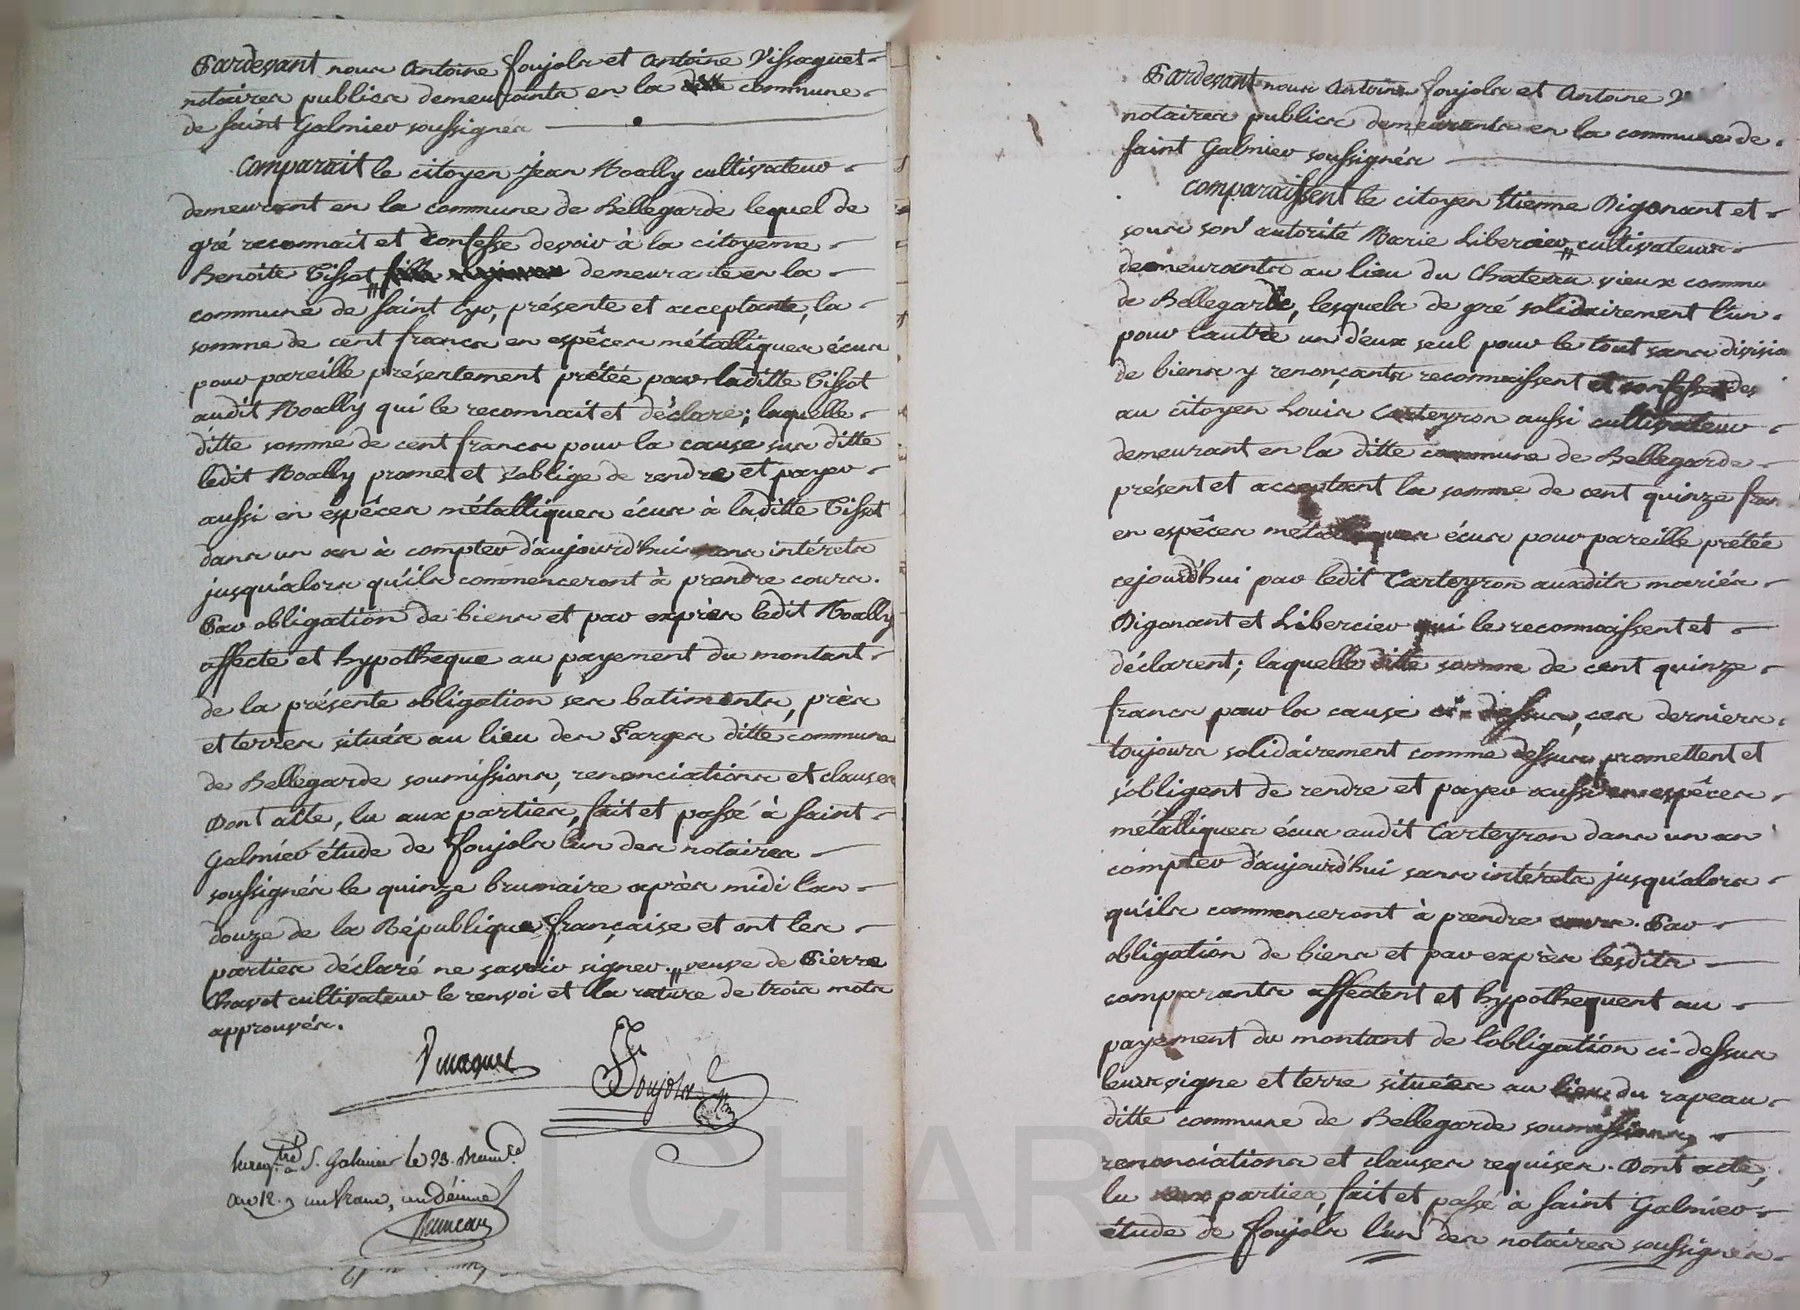 Pardevant nous Antoine Foujols et Antoine Vissaguet
notaires publics demeurants en la commune
de Saint Galmier soussignés
Comparait le citoyen Jean Noally cultivateur
demeurant en la commune de Bellegarde lequel de
gré reconnait et confesse devoir à la citoyenne
Benoite Tissot demeurante en la
commune de Saint Cyr, présente et acceptante, la
somme de cent francs en espêces métalliques écus
pour pareille présentement prétée par laditte Tissot
audit Noally qui le reconnait et déclare; laquelle
ditte somme de cent francs pour la cause sus ditte
ledit Noally promet et s'oblige de rendre et payer
aussi en espêces métalliques écus à laditte Tissot
dans un an à compter d'aujourd'hui sans intérets
jusqu'alors qu'ils commenceront à prendre cours.
Par obligation de biens et par exprès ledit Noally
affecte et hypotheque au payement du montant
de la présente obligation ses batiments, près
et terres situés au lieu des Farges ditte commune
de Bellegarde soumissions, renonciations et clauses
Dont acte, lu aux parties, fait et passé à Saint
Galmier étude de Foujols l'un des notaires
soussignés le quinze brumaire après midi l'an
douze de la République française et ont les
parties déclaré ne savoir signer. " veuve de Pierre
Chavot cultivateur le renvoi et la rature de trois mots
approuvés.
Vissaguet Foujols
Enreg.tré à S. Galmier le 23. Brum.re
an 12. un franc, un décime
Pardevant nous Antoine Foujols et Antoine
notaires publics demeurants en la commune de
Saint Galmier soussignés
Comparaissent le citoyen Etienne Digonant et
sous son autorité Marie Libercier " cultivateurs
demeurants au lieu du Chateau vieux commu
de Bellegarde, lesquels de gré solidairement l'un
pour l'autre un d'eux seul pour le tout sans division
de biens y renonçants reconnaissent et confessent de
au citoyen Louis Carteyron aussi cultivateur
demeurant en la ditte commune de Bellegarde
présent et acceptant la somme de cent quinze fran
en espêces métalliques écus pour pareille prétée
cejourd'hui par ledit Carteyron auxdits mariés
Digonant et Libercier qui le reconnaissent et
déclarent; laquelle ditte somme de cent quinze
francs pour la cause ci-dessus, ces derniers
toujours solidairement comme dessus promettent et
s'obligent de rendre et payer aussi en espêces
métalliques écus audit Carteyron dans un an
compter d'aujourd'hui sans intérets jusqu'alors
qu'ils commenceront à prendre cours. Par
obligation de biens et par exprès lesdits
comparants affectent et hypothequent au
payement du montant de l'obligation ci-dessus
leurs vigne et terre situées au lieu du rapeau
ditte commune de Bellegarde soumissions,
renonciations et clauses requises. Dont acte,
lu aux parties, fait et passé à Saint Galmier
étude de Foujols l'un des notaires soussignés